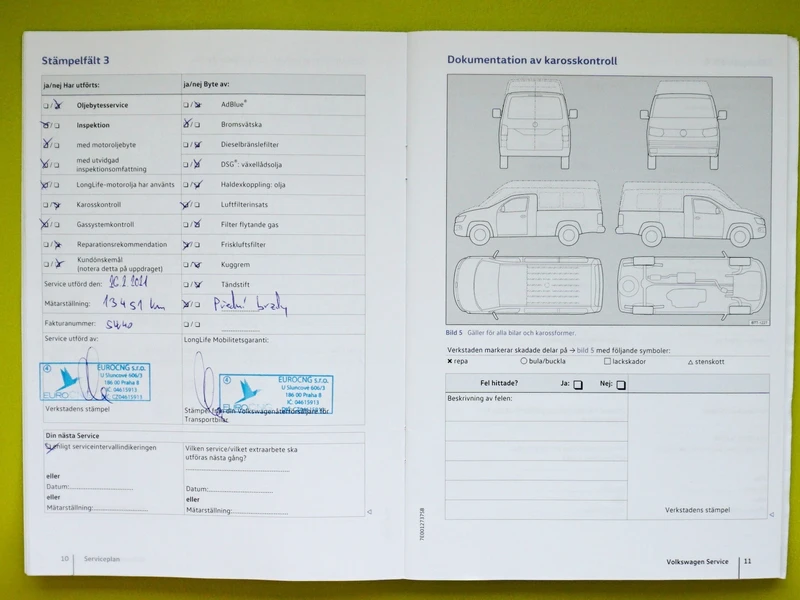 Stämpelfält 3
ja/nej Har utförts:
ja/nej Byte av:
Oljebytesservice
AdBlue®
Inspektion
Bromsvätska
med motoroljebyte
Dieselbränslefilter
med utvidgad
inspektionsomfattning
DSG®: växellådsolja
LongLife-motorolja har använts
Haldexkoppling: olja
Karosskontroll
Luftfilterinsats
Gassystemkontroll
Filter flytande gas
Reparationsrekommendation
Friskluftsfilter
Kundönskemål
(notera detta på uppdraget)
Kuggrem
Service utförd den: 2021
Tändstift
Mätarställning: 13451 km
Přední brzdy
Fakturanummer: 5440
Service utförd av:
LongLife Mobilitetsgaranti:
EUROCNG s.r.o.
U Sluncové 606/3
186 00 Praha 8
IČ: 04615913
DIČ: CZ04615913
EUROCNG
Verkstadens stämpel
EUROCNG s.r.o.
U Sluncové 606/3
186 00 Praha 8
IČ: 04615913
Stämpel din Volkswagenåterförsäljare för
Transportbilar
Din nästa Service
enligt serviceintervallindikeringen
Vilken service/vilket extraarbete ska
utföras nästa gång?
eller
Datum:
eller
Mätarställning:
Datum:
eller
Mätarställning:
10 Serviceplan
Dokumentation av karosskontroll
Bild 5 Gäller för alla bilar och karossformer.
Verkstaden markerar skadade delar på → bild 5 med följande symboler:
repa
bula/buckla
lackskador
stenskott
Fel hittade? Ja: Nej:
Beskrivning av felen:
Verkstadens stämpel
7E0012737SB
Volkswagen Service 11